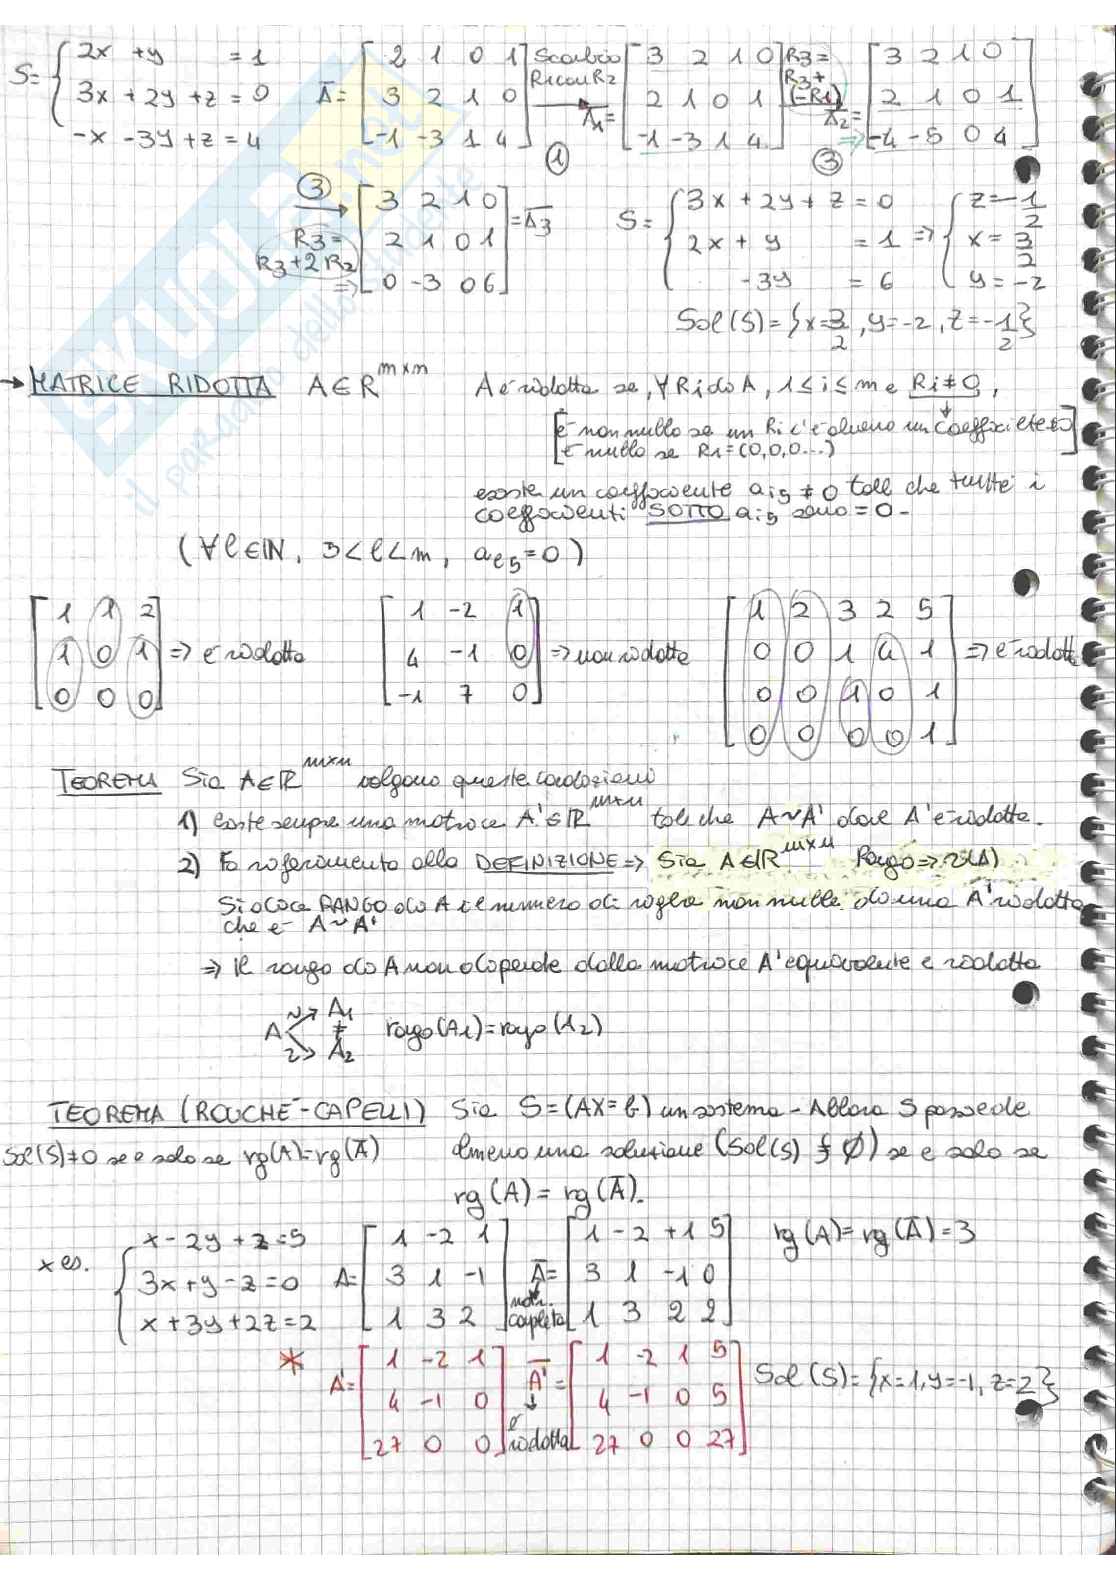 S= { 2x +y = 1
3x + 2y + z = 0
-x -3y + z = 4
Ā= [ 2 1 0 1
3 2 1 0
-1 -3 1 4 ]
Scambio
R1 con R2
Ā1= [ 3 2 1 0
2 1 0 1
-1 -3 1 4 ]
①
R3=
R3+
(-R1)
Ā2= [ 3 2 1 0
2 1 0 1
-4 -5 0 4 ]
③
③
R3=
R3+2R2
[ 3 2 1 0
2 1 0 1
0 -3 0 6 ] = Ā3
S= { 3x + 2y + z = 0
2x + y = 1
-3y = 6
⇒ { z=-1/2
x= 3/2
y= -2
Sol(S)= {x=3/2, y=-2, z=-1/2}
→ MATRICE RIDOTTA A∈R^mxn A è ridotta se, ∀ Ri di A, 1≤i≤m e Ri≠0,
[è non nullo se un Ri c'è almeno un coefficiente≠0]
[è nullo se R1=(0,0,0...)
esiste un coefficiente aij ≠0 tale che tutti i
coefficienti SOTTO aij sono =0-
(∀ℓ∈IN, J<ℓ<m, aℓj=0)
[ 1 1 2
1 0 1
0 0 0 ] ⇒ è ridotta
[ 1 -2 1
4 -1 0
-1 7 0 ] ⇒ non ridotta
[ 1 2 3 2 5
0 0 1 a 1
0 0 1 0 1
0 0 0 0 1 ] ⇒ è ridotta
TEOREMA Sia A∈R^mxn valgono queste condizioni
1) esiste sempre una matrice A'∈R^mxn tale che A~A' dove A' è ridotta.
2) Fa riferimento alla DEFINIZIONE ⇒ Sia A∈R^mxn Rango ⇒ r(A)
Si dice RANGO di A il numero di righe non nulle di una A' ridotta
che è A~A'
⇒ Il rango di A non dipende dalla matrice A' equivalente e ridotta
A ~> A1
≠
A2
rango(A1)=rango(A2)
TEOREMA (ROUCHÉ-CAPELLI) Sia S=(AX=b) un sistema - Allora S possiede
Sol(S)≠0 se e solo se rg(A)=rg(Ā) almeno una soluzione (Sol(S) ≠ ∅) se e solo se
rg(A) = rg(Ā).
x es. { x-2y+z=5
3x+y-z=0
x+3y+2z=2
A= [ 1 -2 1
3 1 -1
1 3 2 ]
Ā= [ 1 -2 +1 5
3 1 -1 0
1 3 2 2 ]
matr.
completa
rg(A)=rg(Ā)=3
* A'= [ 1 -2 1
4 -1 0
27 0 0 ]
Ā'= [ 1 -2 1 5
4 -1 0 5
27 0 0 27 ]
è
ridotta
Sol(S)={x=1, y=-1, z=2}
SKUOLA.net
il paradiso dello studente